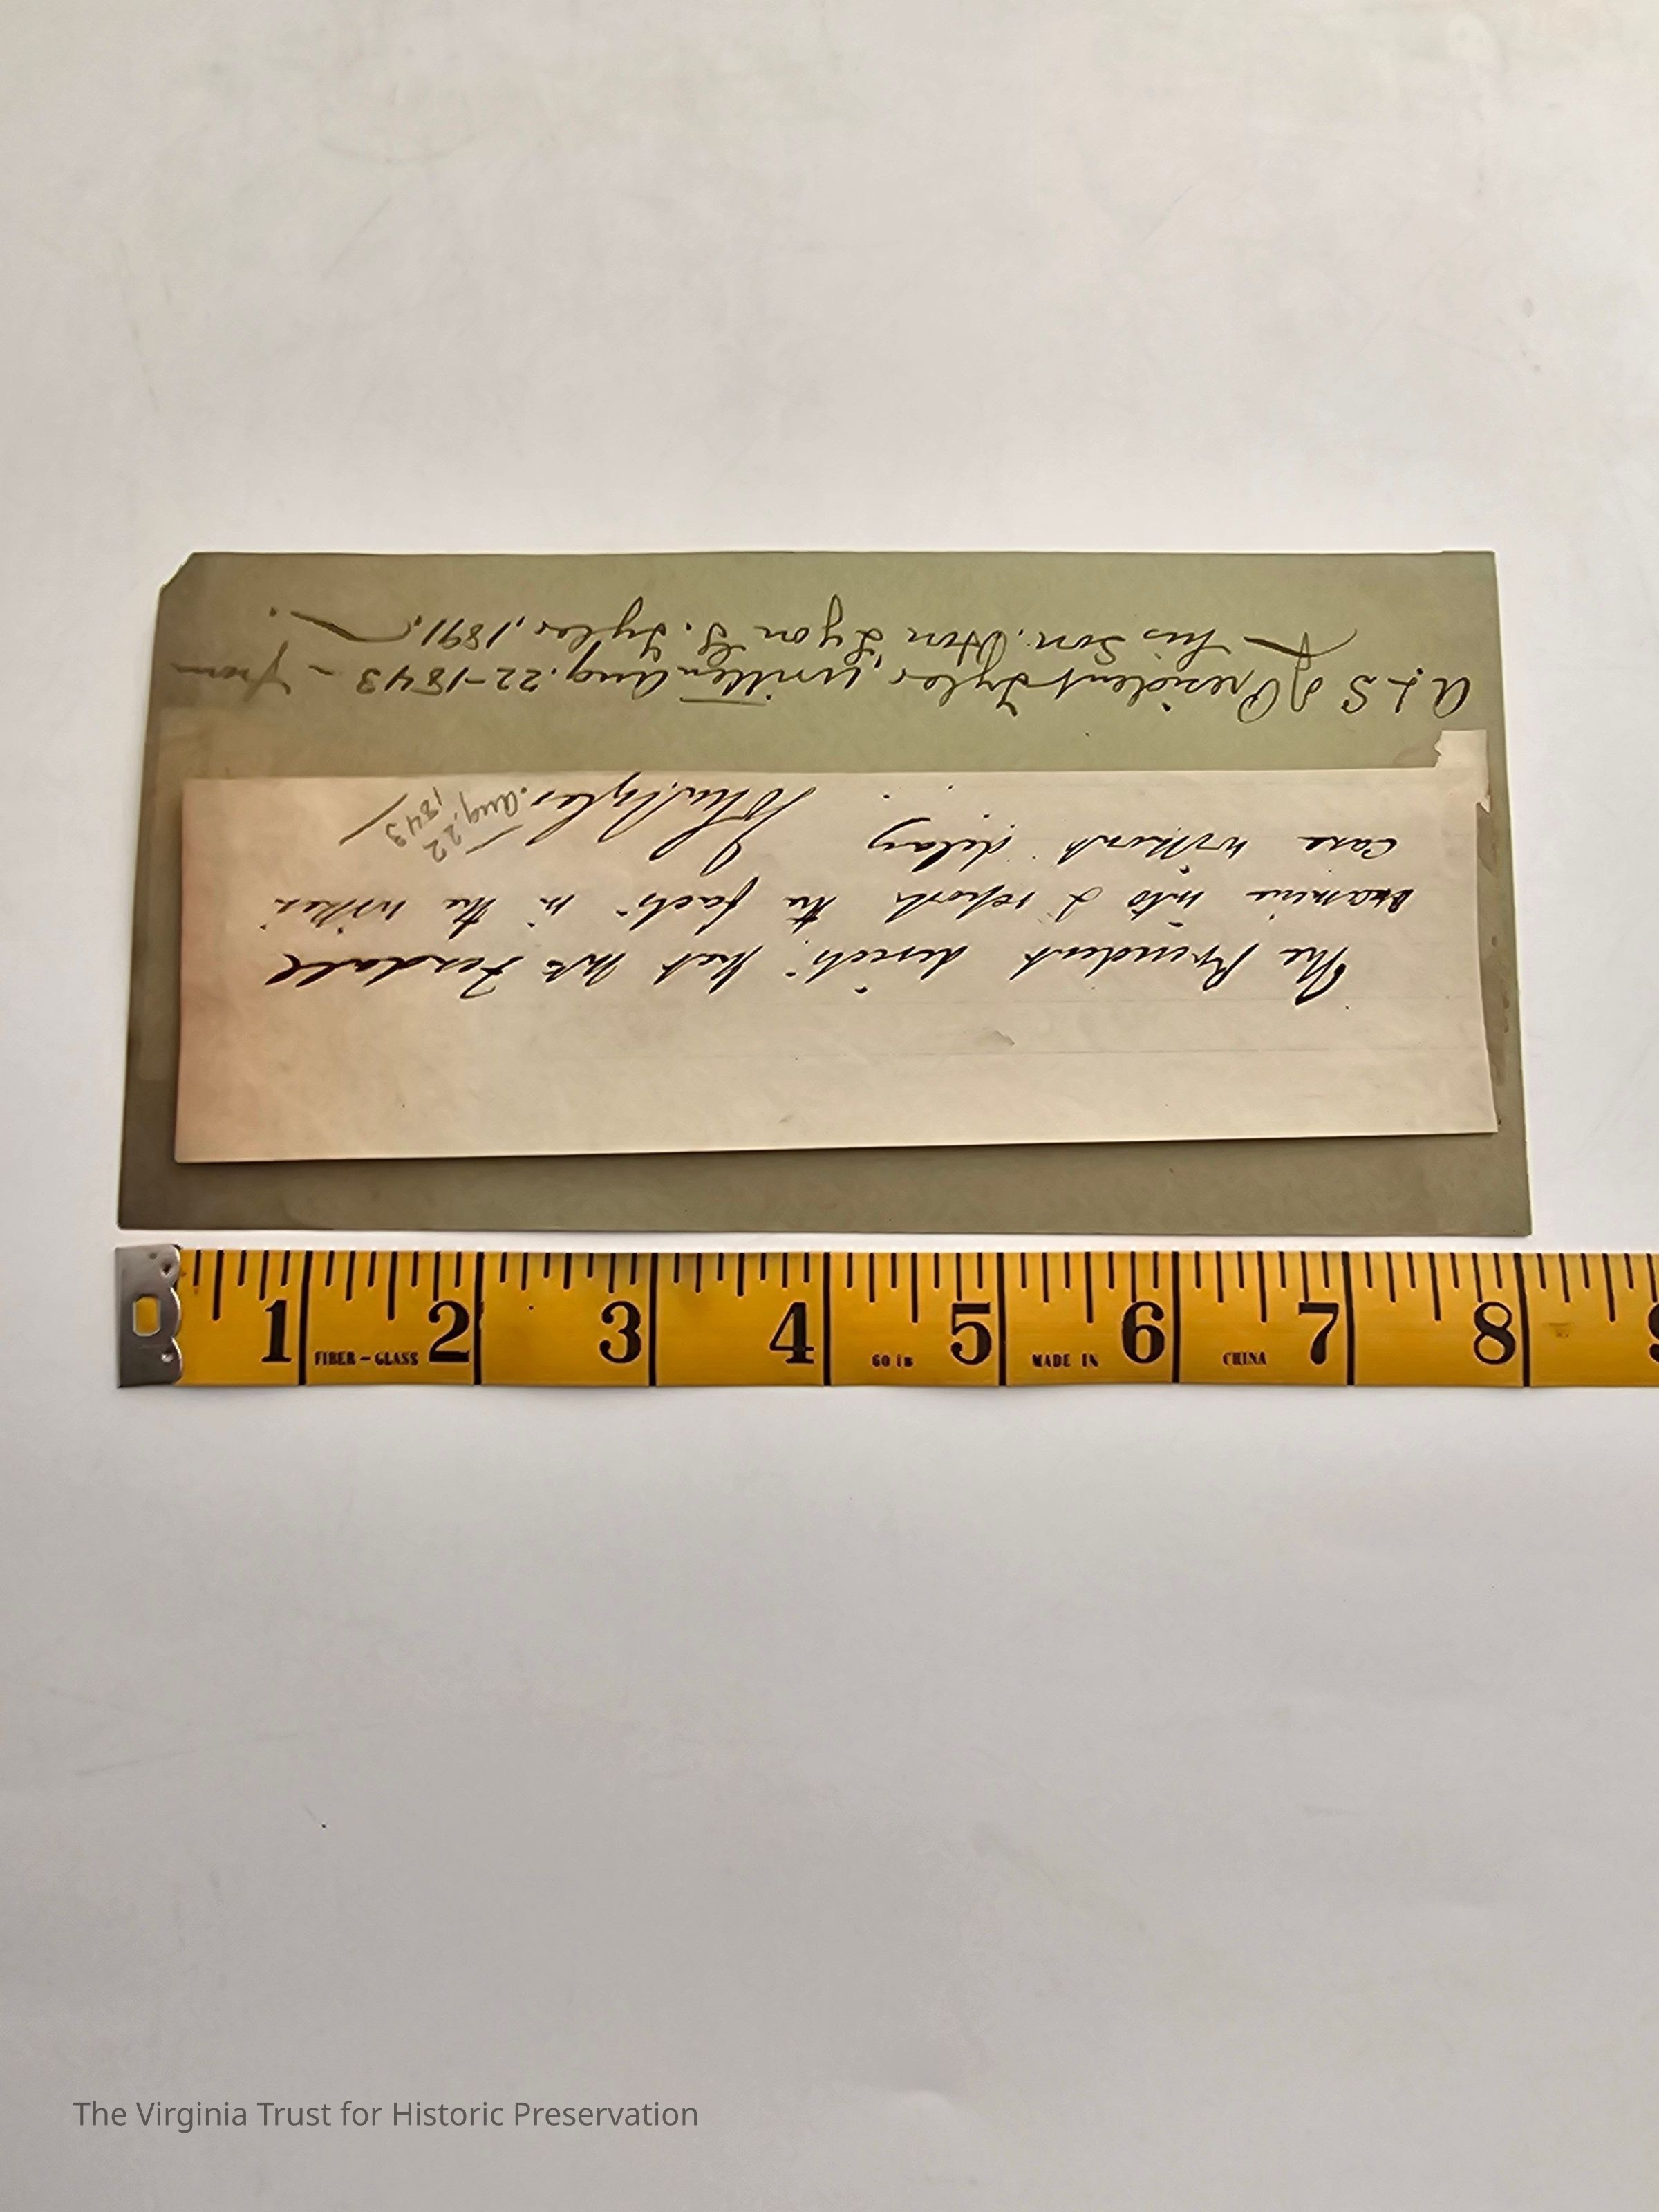 The President directs that Mr Fendall
examine into & report the facts in the within
case without delay
John Tyler
Aug. 22
1843
A.L.S of President Tyler, written Aug. 22-1843 - from
his son. Hon Lyon G. Tyler, 1891.
1 2 3 4 5 6 7 8 9
FIBER-GLASS 60 in MADE IN CHINA
The Virginia Trust for Historic Preservation